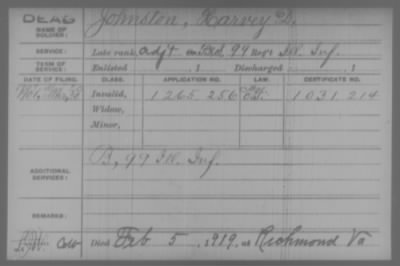 DEAD
NAME OF SOLDIER: Johnston, Harvey D.
SERVICE: Late rank, Adjt 99 Reg't Ill. Inf.
TERM OF SERVICE: Enlisted , 1 Discharged , 1
DATE OF FILING. CLASS. APPLICATION NO. LAW. CERTIFICATE NO.
Invalid, 1265256 1031214
Widow,
Minor,
ADDITIONAL SERVICES: B, 99 Ill. Inf.
REMARKS:
Died Feb 5, 1919, at Richmond Va